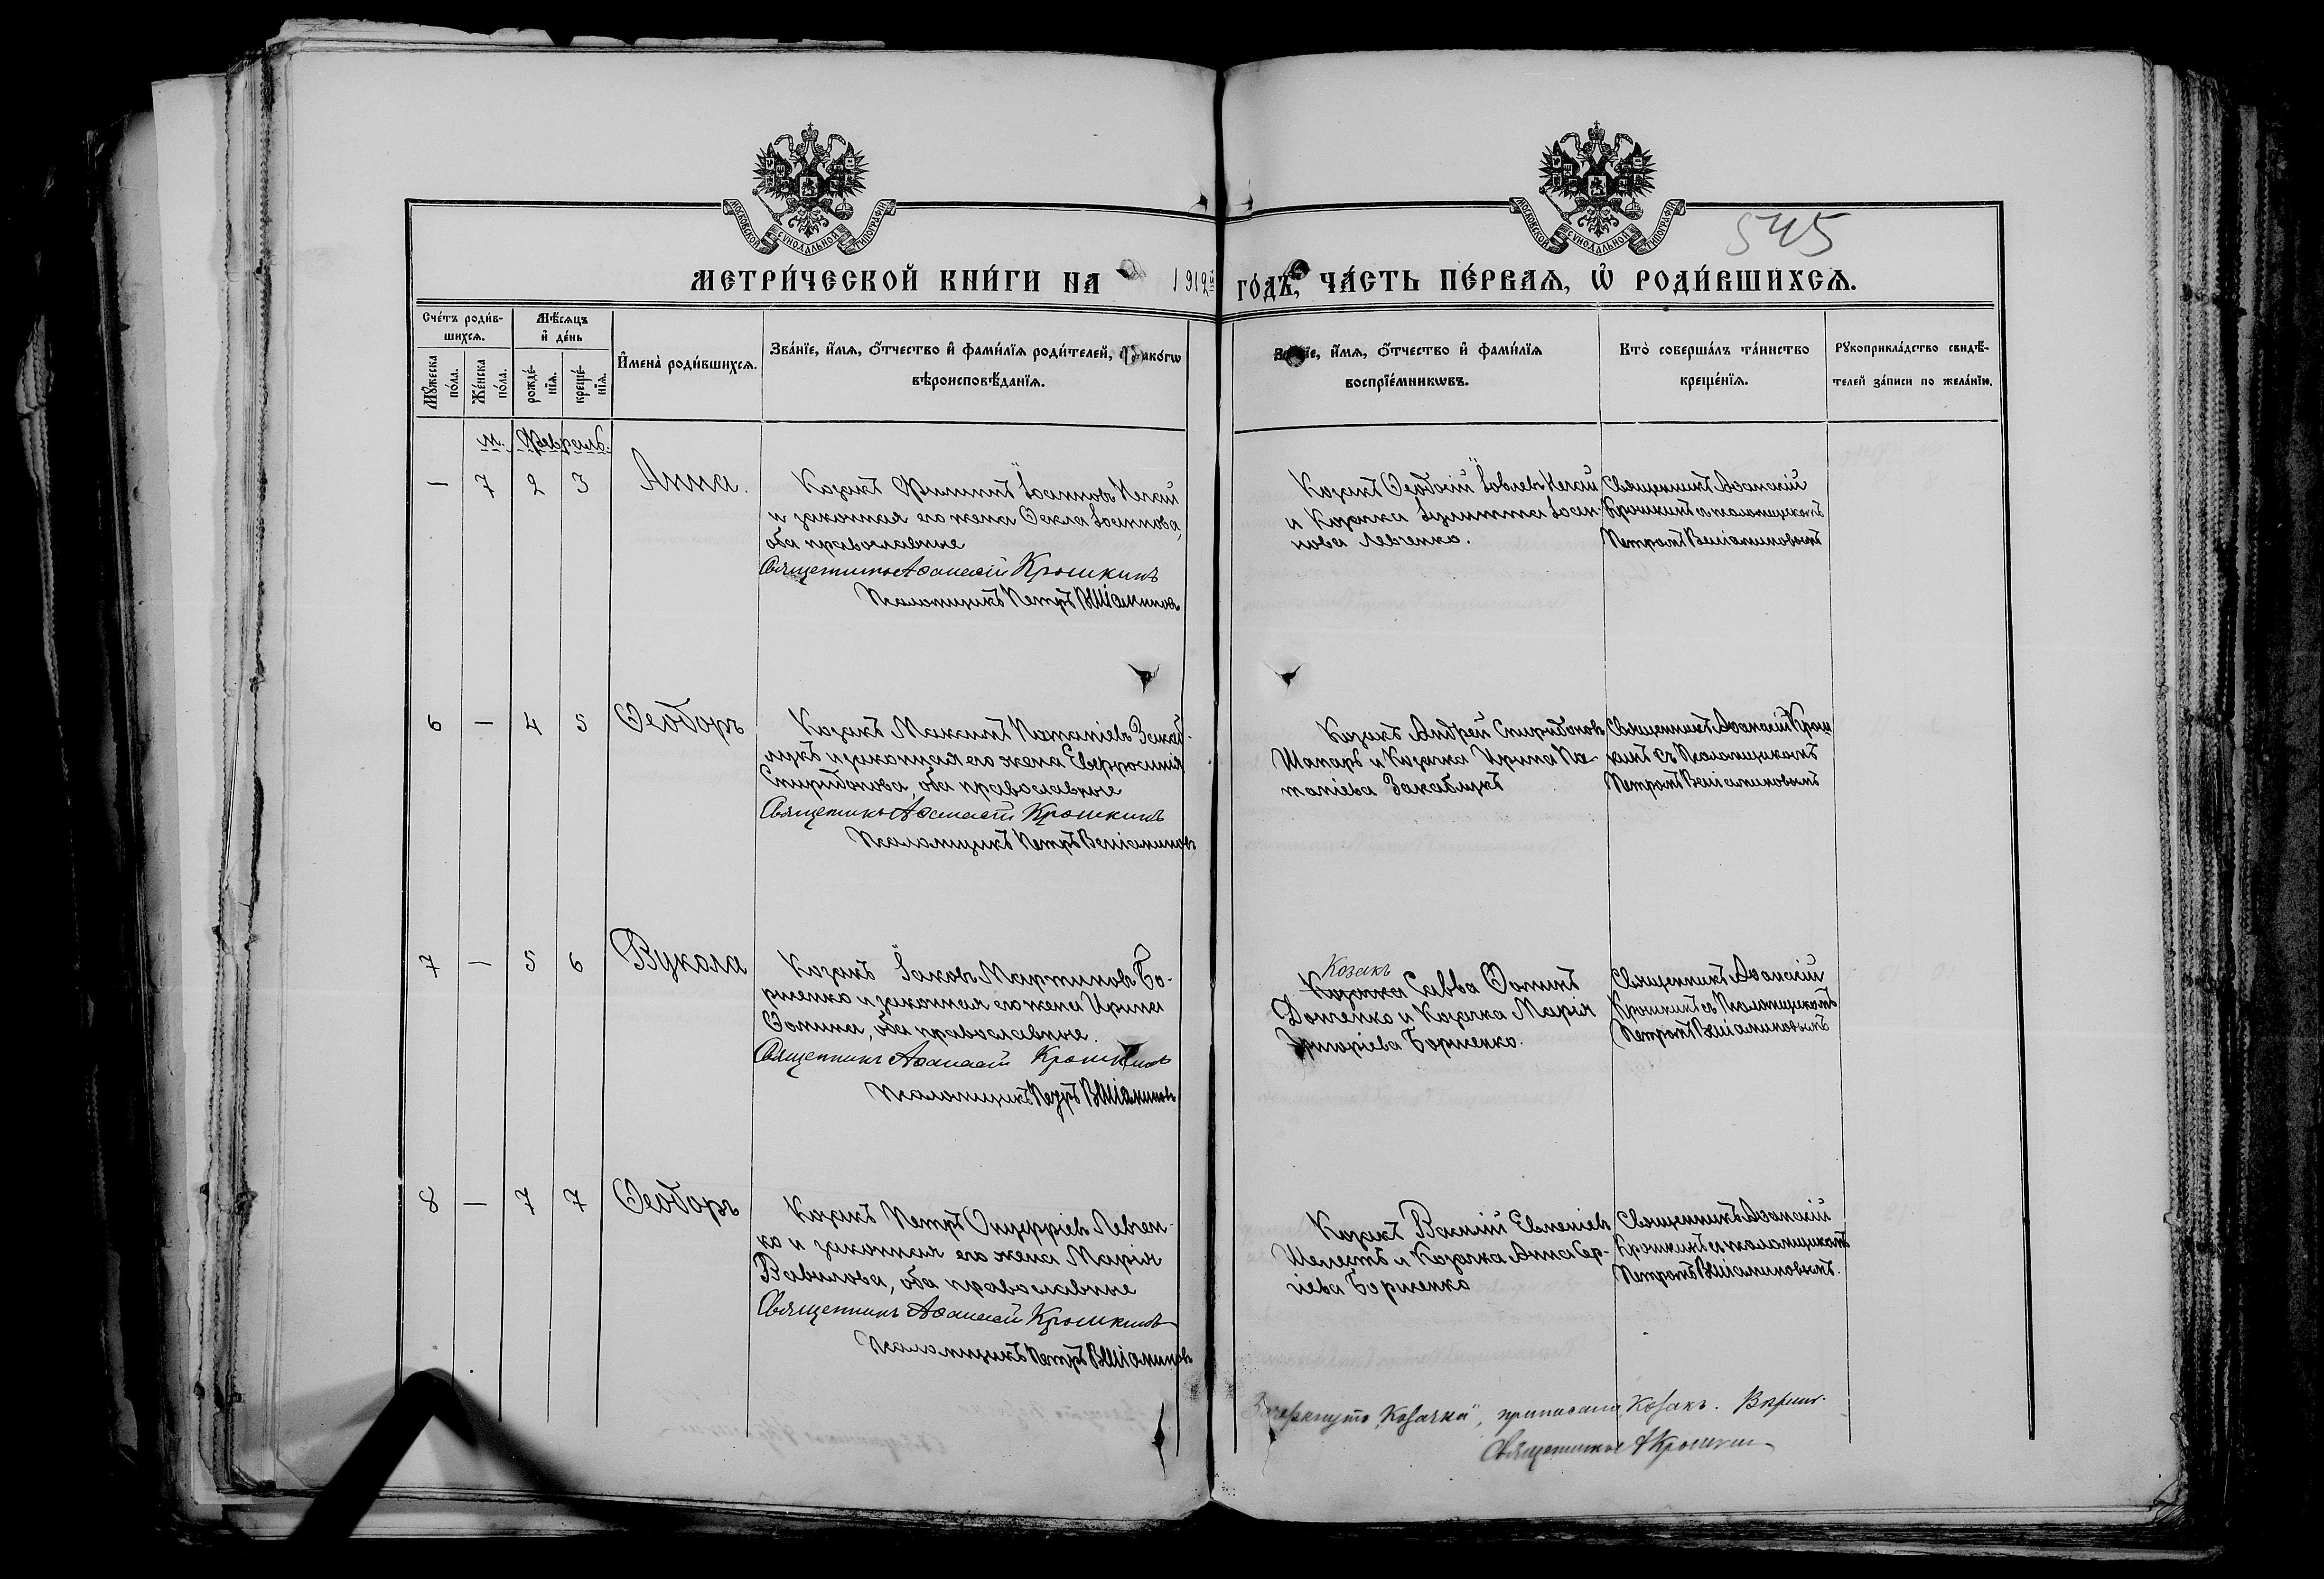 МОСКОВСКОЙ СУНОДАЛЬНОЙ ТИПОГРАФІИ
МОСКОВСКОЙ СУНОДАЛЬНОЙ ТИПОГРАФІИ
545
МЕТРИ́ЧЕСКОЙ КНИ́ГИ НА 1912й ГО́ДЪ, ЧА́СТЬ ПЕ́РВАЯ, Ѡ҆ РОДИ́ВШИХСЯ.
Сче́тъ роди́в-
шихся.
Мѣ́сяцъ
и҆ де́нь
Мꙋ́жеска по́ла.
Же́нска по́ла.
рожде́-
нїя.
креще́-
нїя.
И҆мена̀ роди́вшихся.
Зва́нїе, и҆́мя, ѻ҆́тчество и҆ фами́лїя роди́телей, и҆ како́гѡ
вѣроисповѣ́данїя.
и҆́мя, ѻ҆́тчество и҆ фами́лїя
воспрїе́мникѡвъ.
Кто̀ соверша́лъ та́инство
креще́нїя.
Рꙋкоприкла́дство свидѣ́-
телей за́писи по жела́нїю.
м. Февраль.
— 7 2 3 Анна.
Козакъ Филиппъ Іоанновъ
и законная его жена Ѳекла Іоаннова,
оба православные
Священникъ Аѳанасій Крошкинъ
Псаломщикъ Петръ Веніаминовъ
Козакъ Ѳеодосій Іовлевъ
и Козачка Іулитта Іоан-
нова Левченко.
Священникъ Аѳанасій
Крошкинъ съ псаломщикомъ
Петромъ Веніаминовымъ
6 — 4 5 Ѳеодоръ
Козакъ Максимъ Потапіевъ Закаб-
лукъ и законная его жена Евфросинія
Спиридонова, оба православные
Священникъ Аѳанасій Крошкинъ
Псаломщикъ Петръ Веніаминовъ
Козакъ Андрей Спиридоновъ
Шапарь и Козачка Ирина По-
тапіева Закаблукъ
Священникъ Аѳанасій Крош
кинъ съ Псаломщикомъ
Петромъ Веніаминовымъ
7 — 5 6 Вукола
Козакъ Іаковъ Мартиновъ Бо-
рченко и законная его жена Ирина
Ѳомина, оба православные.
Священникъ Аѳанасій Крошкинъ
Псаломщикъ Петръ Веніаминовъ
Козакъ
Козачка Савва Ѳоминъ
Донченко и Козачка Марія
Григоріева Борченко.
Священникъ Аѳанасій
Крошкинъ съ Псаломщикомъ
Петромъ Веніаминовымъ
8 — 7 7 Ѳеодоръ
Козакъ Петръ Онуфріевъ Левчен-
ко и законная его жена Марія
Вавилова, оба православные
Священникъ Аѳанасій Крошкинъ
Псаломщикъ Петръ Веніаминовъ
Козакъ Василій Евменіевъ
Шелестъ и Козачка Анна Сер-
гіева Борченко
Священникъ Аѳанасій
Крошкинъ съ псаломщикомъ
Петромъ Веніаминовымъ.
Зачеркнуто „Козачка", приписано Козакъ.
Священникъ А Крошкин